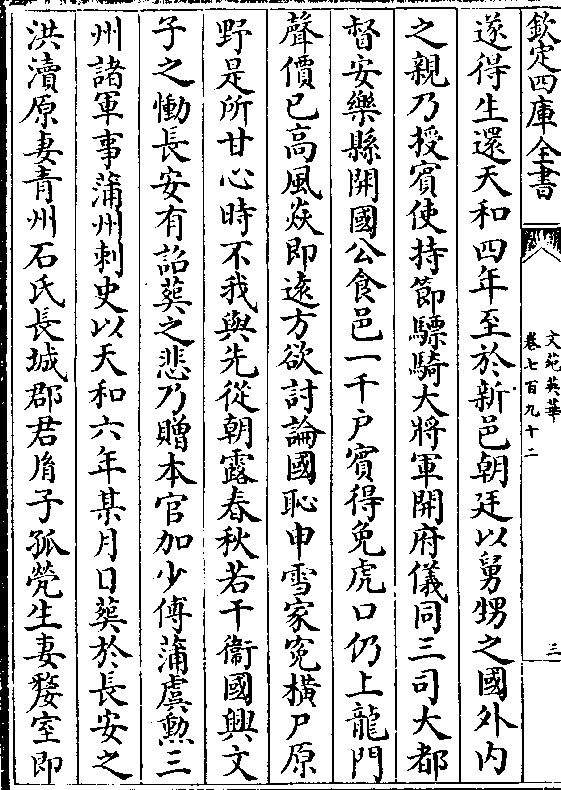 欽定四庫全書
文苑英華
卷七百九十二
三
遂得生還天和四年至於新邑朝廷以舅甥之國外内
之親乃授賔使持節驃騎大將軍開府儀同三司大都
督安樂縣開國公食邑一千户賔得免虎口仍上龍門
聲價已高風猋即逺方欲討論國恥申雪家寃横尸原
野是所甘心時不我與先從朝露春秋若干衞國興文
子之慟長安有詔葬之悲乃贈本官加少傅蒲虞勲三
州諸軍事蒲州刺史以天和六年某月日葬於長安之
洪瀆原妻青州石氏長城郡君胤子孤煢生妻嫠室即